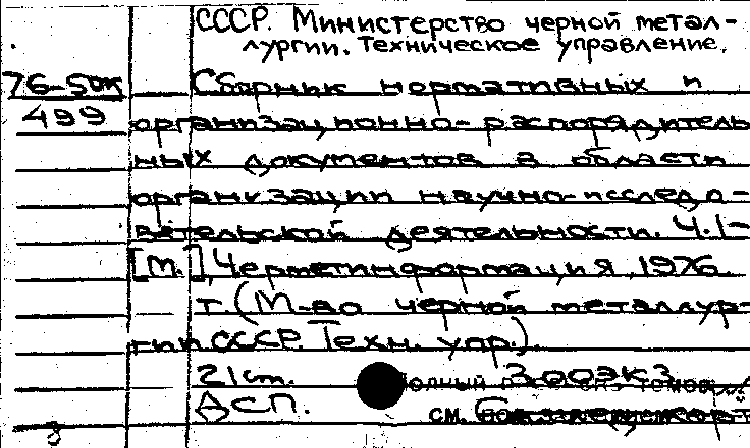 СССР. Министерство черной метал-
лургии. Техническое управление.
76-50к
Сборник нормативных и
499
организационно-распорядитель
ных документов в области
организации научно-исследо-
вательской деятельности. Ч.1-
[М.], Черметинформация, 1976.
т. (М-во черной металлур-
гии СССР. Техн. упр.).
21 cm. 300экз
ДСП. см.